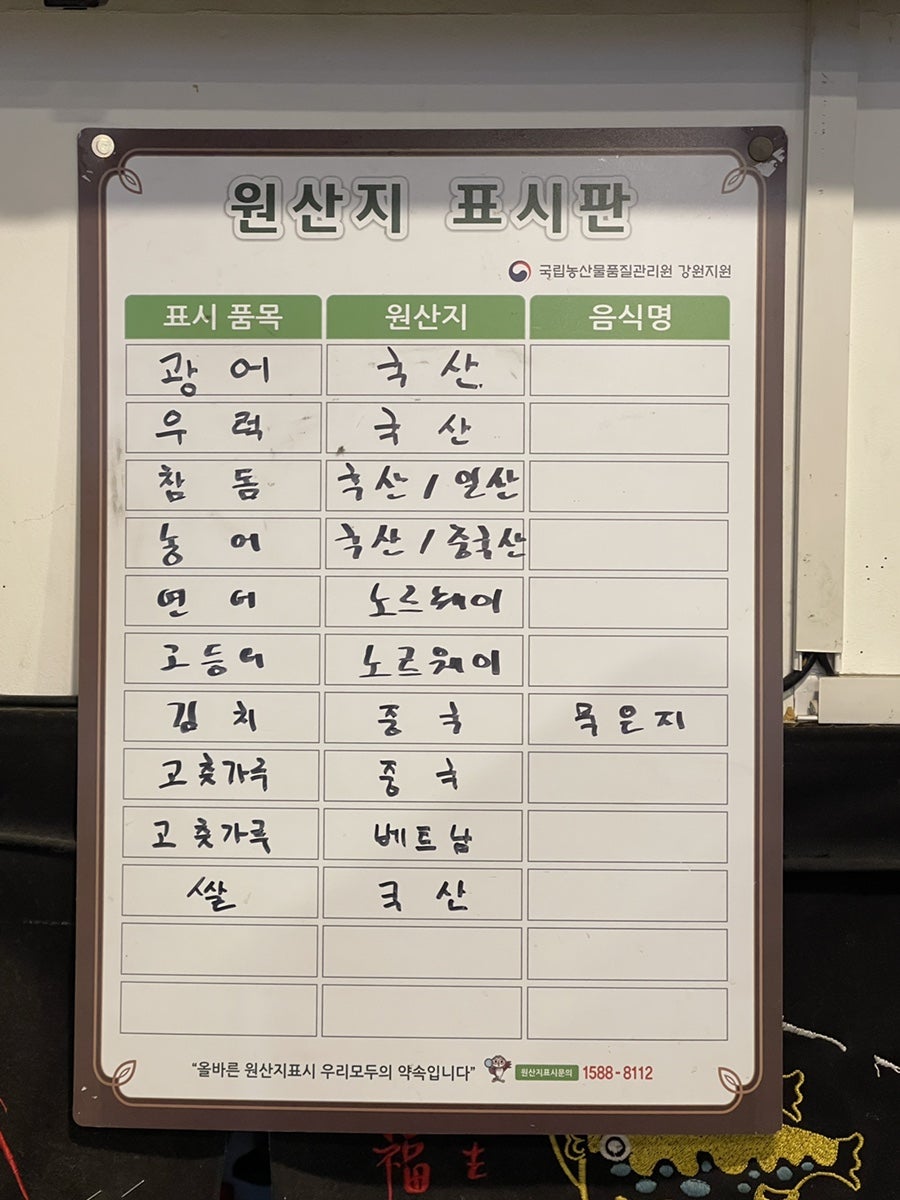 원산지 표시판
국립농산물품질관리원 강원지원
표시 품목 원산지 음식명
광어 국산
우럭 국산
참돔 국산 / 일산
농어 국산 / 중국산
연어 노르웨이
고등어 노르웨이
김치 중국 묵은지
고춧가루 중국
고춧가루 베트남
쌀 국산
"올바른 원산지표시 우리모두의 약속입니다" 원산지표시문의 1588-8112
福